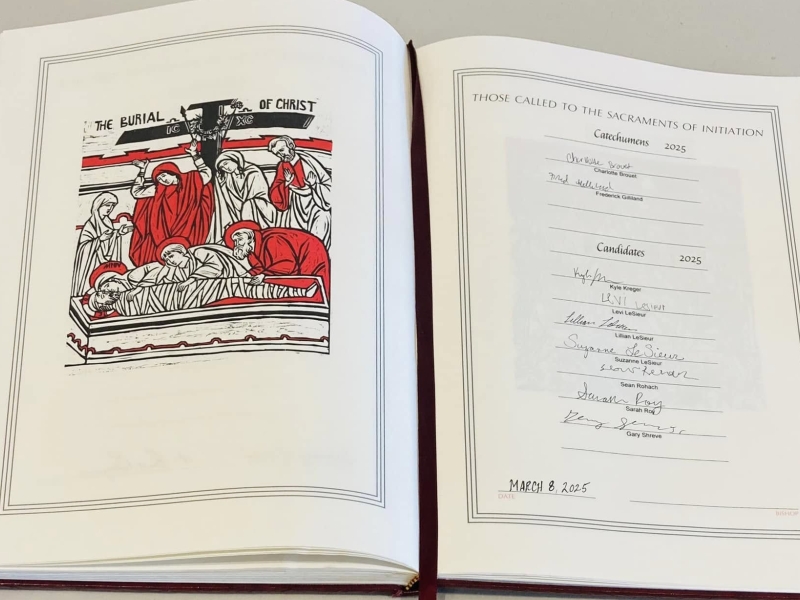 THE BURIAL OF CHRIST
IC XC
THOSE CALLED TO THE SACRAMENTS OF INITIATION
Catechumens 2025
Charlotte Brouet
Charlotte Brouet
Frederick Gilliland
Candidates 2025
Kyle Kreger
LEVI LeSieur
Levi LeSieur
Lillian LeSieur
Lillian LeSieur
Suzanne LeSieur
Suzanne LeSieur
Sean Rohach
Sarah Roy
Sarah Roy
Gary Shreve
MARCH 8, 2025
DATE
BISHOP